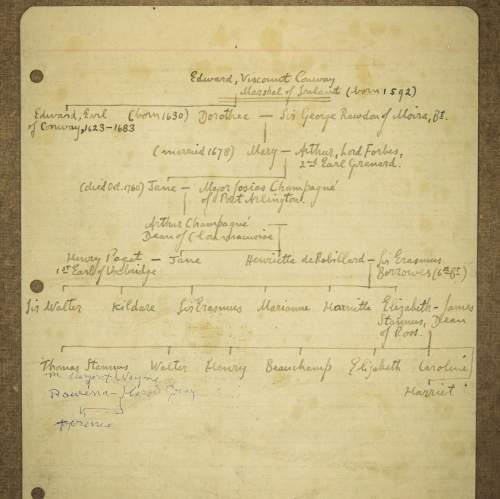 Edward, Viscount Conway
Marshal of Ireland (born 1592)
Edward, Earl (born 1630) Dorothea — Sir George Rawdon of Moira, Bt.
of Conway, 1623-1683
(married 1678) Mary — Arthur, Lord Forbes,
2nd Earl Granard.
(died Oct. 1760) Jane — Major Josias Champagné
of Port Arlington.
Arthur Champagné
Dean of Clonmacnoise
Henry Paget — Jane Henriette de Robillard — Sir Erasmus
1st Earl of Uxbridge Borrowes (6th Bt)
Sir Walter Kildare Sir Erasmus Marianne Harriette Elizabeth — James
Stannus, Dean
of Ross.
Thomas Stannus Walter Henry Beauchamp Elizabeth Caroline
Harriet
m Wayne
Rowena —
Florence